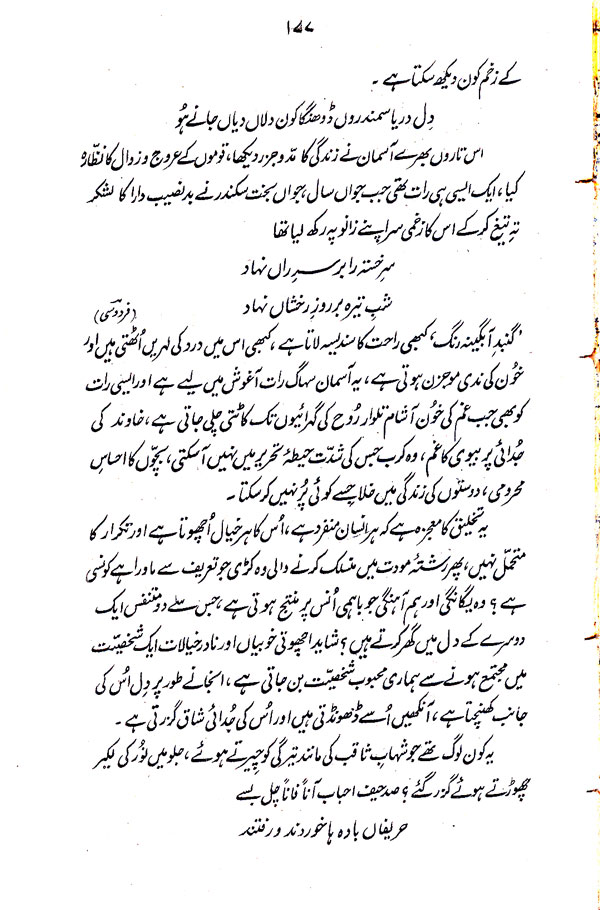 ۱۷۷
کے زخم کون دیکھ سکتا ہے ۔
دِل دریا سمندروں ڈوھنگا کون دلاں دیاں جانے ہُو
اس تاروں بھرے آسمان نے زندگی کا مدّ و جزر دیکھا، قوموں کے عروج و زوال کا نظارہ
کیا، ایک ایسی ہی رات تھی جب جواں سال، جواں بخت سکندر نے بدنصیب دارا کا لشکر
تہِ تیغ کر کے اس کا زخمی سر اپنے زانو پہ رکھ لیا تھا
سرِ خستہ را بر سرِ راں نہاد
شبِ تیرہ بر روزِ رخشاں نہاد
(فردوسی)
'گنبدِ آبگینہ رنگ' کبھی راحت کا سندیسہ لاتا ہے، کبھی اس میں درد کی لہریں اُٹھتی ہیں اور
خُون کی ندی موجزن ہوتی ہے، یہ آسمان سہاگ رات آغوش میں لیے ہے اور ایسی رات
کو بھی جب غم کی خُون آشام تلوار رُوح کی گہرائیوں تک کاٹتی چلی جاتی ہے، خاوند کی
جُدائی پر بیوی کا غم، وہ کرب جس کی شدّت حیطۂ تحریر میں نہیں آ سکتی، بچّوں کا احساسِ
محرومی، دوستوں کی زندگی میں خلا جسے کوئی پُر نہیں کر سکتا ۔
یہ تخلیق کا معجزہ ہے کہ ہر انسان منفرد ہے، اُس کا ہر خیال اُچھوتا ہے اور تکرار کا
متحمّل نہیں، پھر رشتۂ مودت میں منسلک کرنے والی وہ کڑی جو تعریف سے ماورا ہے کونسی
ہے ؟ وہ یگانگی اور ہم آہنگی جو باہمی اُنس پر منتج ہوتی ہے، جس سے دو متنفس ایک
دوسرے کے دل میں گھر کرتے ہیں ؟ شاید اچھوتی خوبیاں اور نادر خیالات ایک شخصیّت
میں مجتمع ہونے سے ہماری محبوب شخصیّت بن جاتی ہے، انجانے طور پر دِل اُس کی
جانب کھنچتا ہے، آنکھیں اُسے ڈھونڈتی ہیں اور اُس کی جُدائی شاق گزرتی ہے ۔
یہ کون لوگ تھے جو شہابِ ثاقب کی مانند تیرگی کو چیرتے ہوئے، جلو میں نُور کی لکیر
چھوڑتے ہوئے گزر گئے ؟ صد حیف احباب آناً فاناً چل بسے
حریفاں بادہ ہا خوردند و رفتند